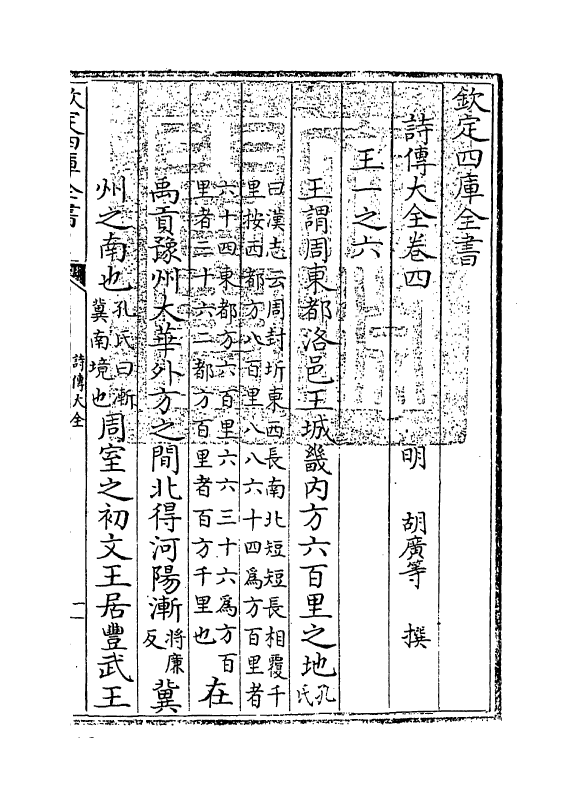 欽定四庫全書
詩傳大全卷四　明　胡廣等　撰
王一之六
王謂周東都洛邑王城畿内方六百里之地孔氏
曰漢志云周封圻東西長南北短短長相覆千
里按西都方八百里八八六十四爲方百里者
六十四東都方六百里六六三十六爲方百
里者三十六二都方百里者百方千里也
在
禹貢豫州太華外方之間北得河陽漸將廉反冀
州之南也孔氏曰漸冀南境也周室之初文王居豐武王
欽定四庫全書
詩傳大全